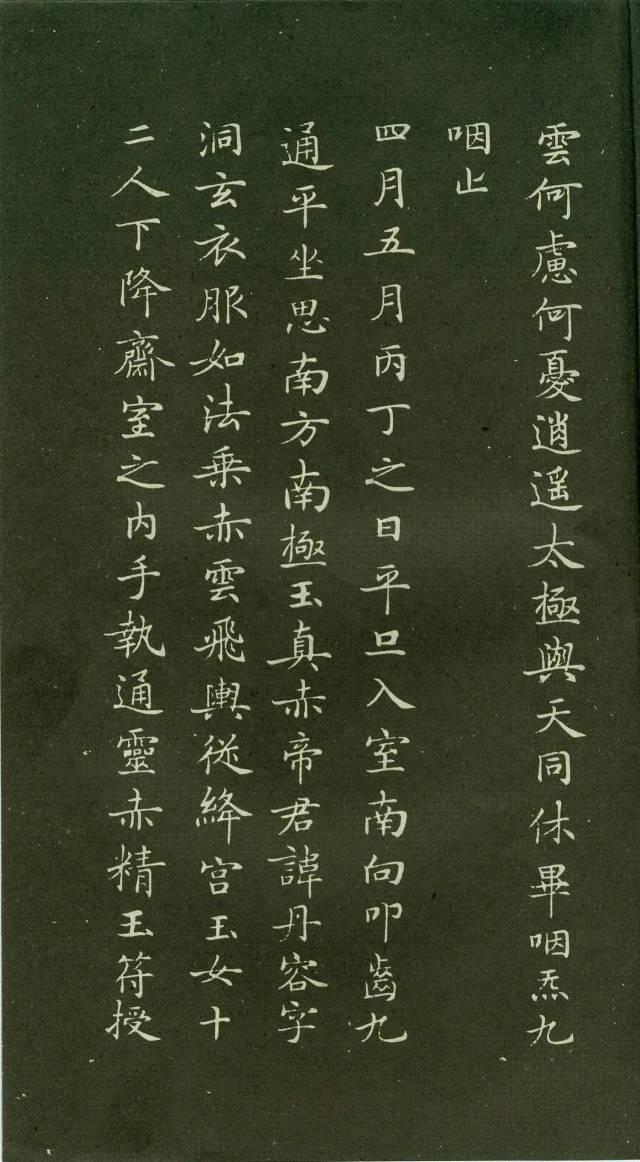 雲何慮何憂逍遥太極與天同休畢咽炁九
咽止
四月五月丙丁之日平旦入室南向叩齒九
通平坐思南方南極玉真赤帝君諱丹容字
洞玄衣服如法乗赤雲飛輿從絳宫玉女十
二人下降齋室之内手執通靈赤精玉符授